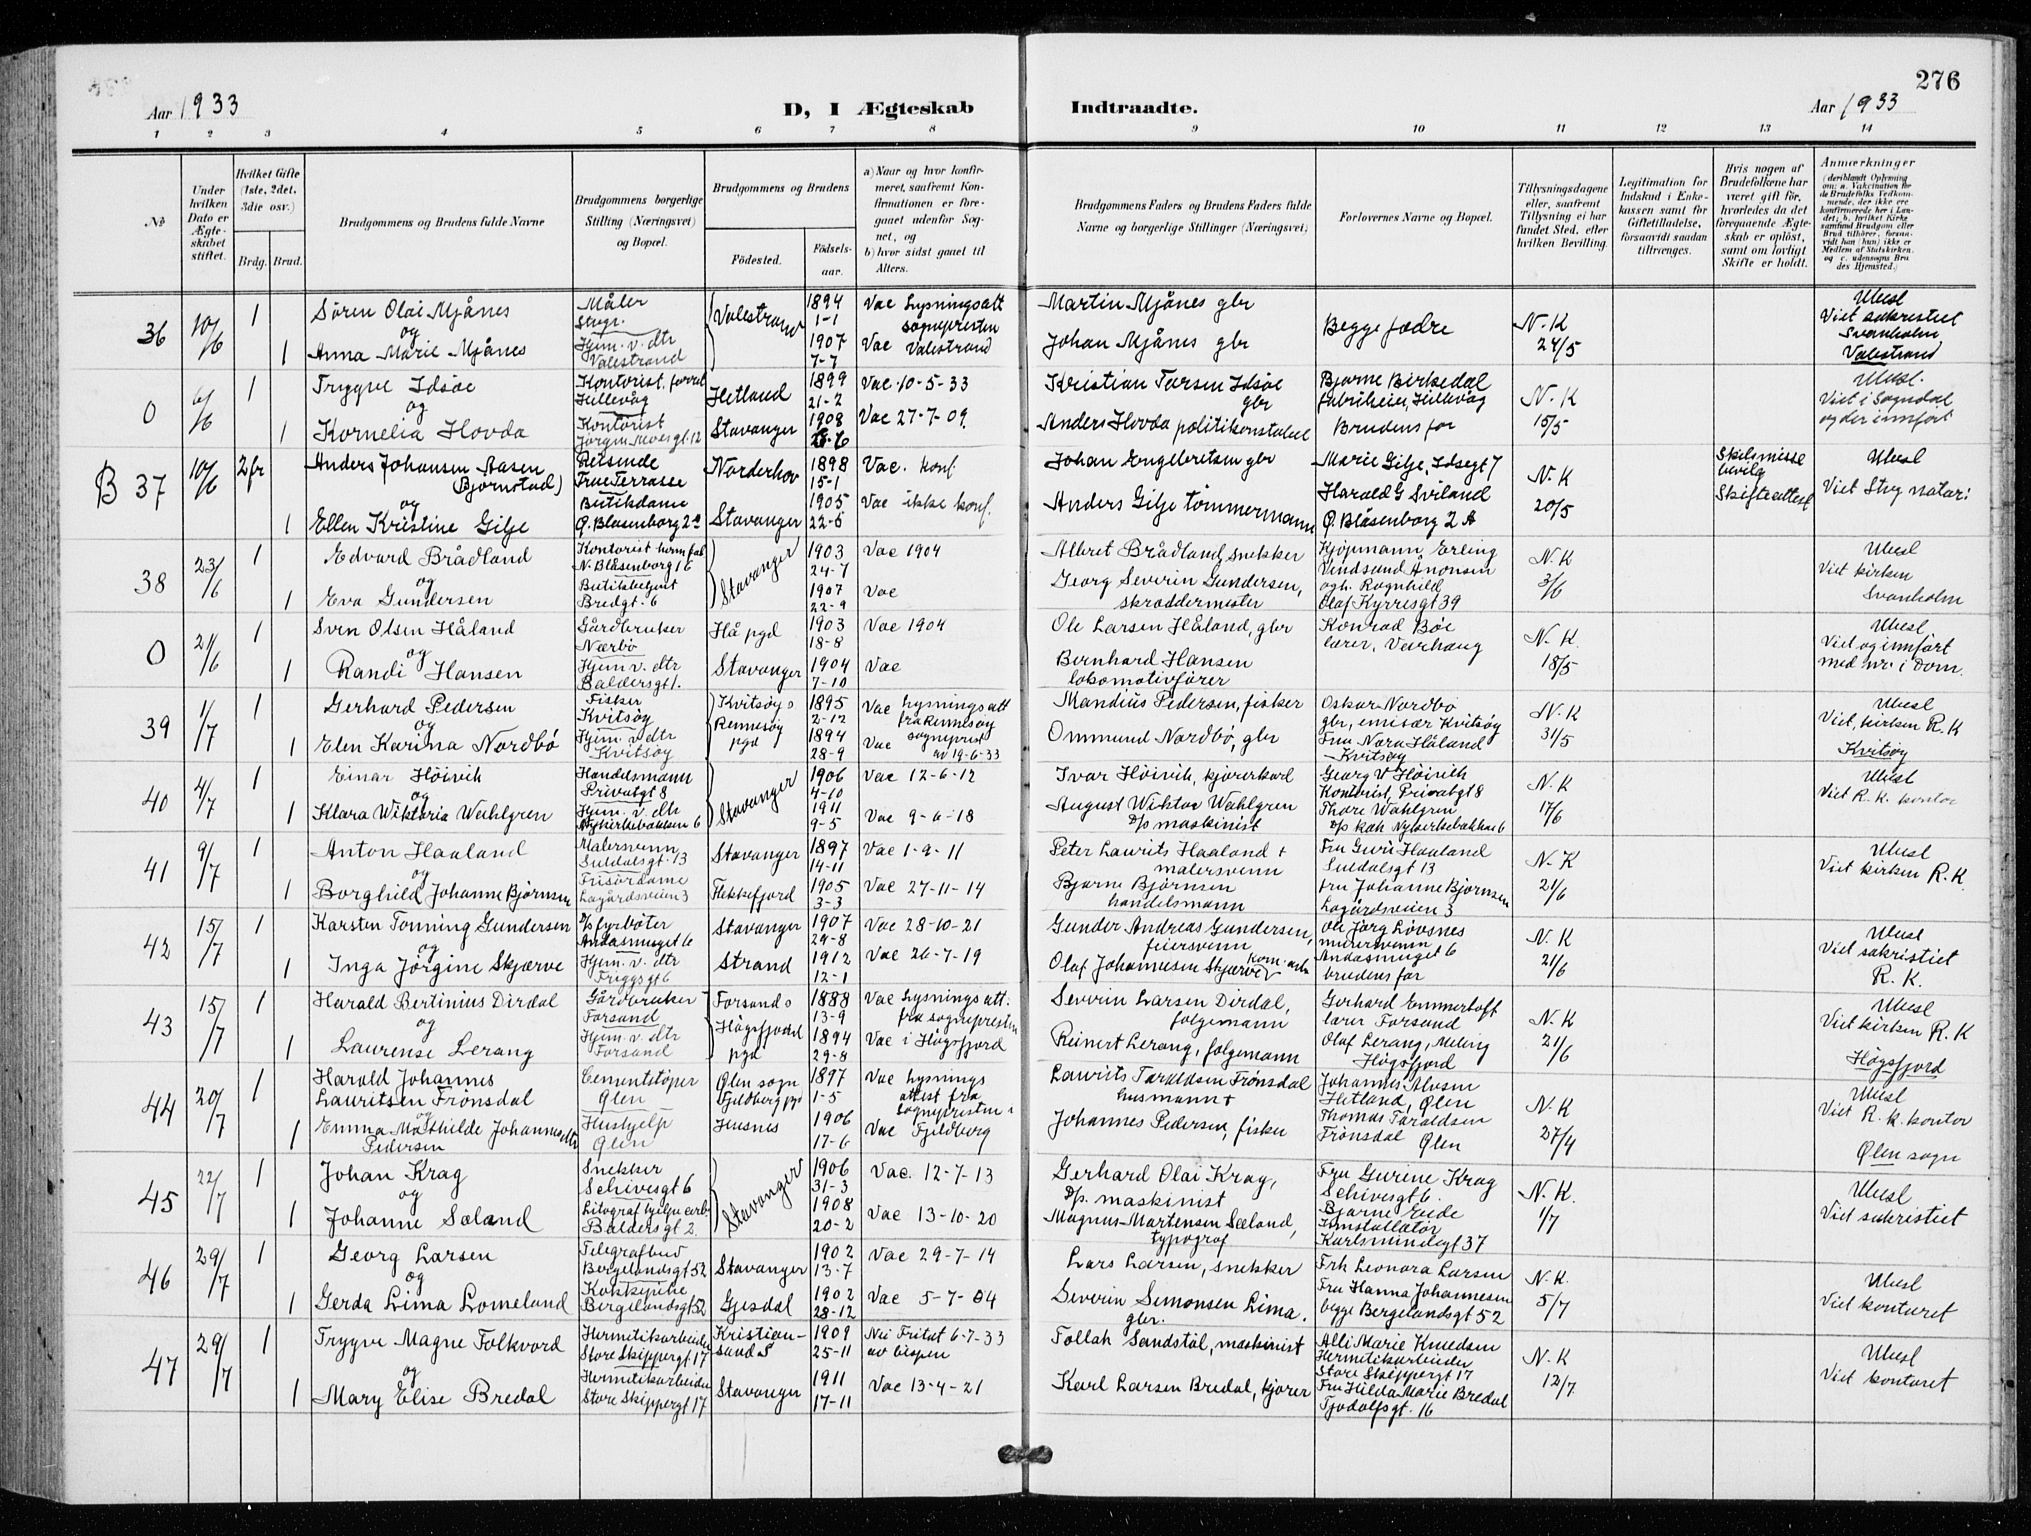 276
Aar 1933
D, I Ægteskab Indtraadte.
Aar 1933
1 2 3 4 5 6 7 8 9 10 11 12 13 14
No
Under hvilken Dato er Ægteskabet stiftet.
Hvilket Gifte (1ste, 2det, 3die osv.)
Brdg. Brud.
Brudgommens og Brudens fulde Navne
Brudgommens borgerlige Stilling (Næringsvei) og Bopæl.
Brudgommens og Brudens
Fødested. Fødselsaar.
a) Naar og hvor konfirmeret, saafremt Konfirmationen er foregaaet udenfor Sognet, og
b) hvor sidst gaaet til Alters.
Brudgommens Faders og Brudens Faders fulde Navne og borgerlige Stillinger (Næringsvei)
Forlovernes Navne og Bopæl.
Tillysningsdagene eller, saafremt Tillysning ei har fundet Sted, efter hvilken Bevilling.
Legitimation for Indskud i Enkekassen samt for Giftetilladelse, forsaavidt saadan tiltrænges.
Hvis nogen af Brudefolkene har været gift før, hvorledes da det foregaaende Ægteskab er opløst, samt om lovligt Skifte er holdt.
Anmærkninger
36 10/6 1 Søren Olai Mjånes Måler Valestrand 1894 1-1 Vac Lysningsatt sognepresten Martin Mjånes gbr Begge fædre N.K 24/5 Ubesl Viet sakristiet Svanholm Valestrand
og
1 Anna Marie Mjånes Hjem. v. dtr Valestrand 1907 7-7 Vac Valestrand Johan Mjånes gbr
0 6/6 1 Trygve Idsøe Kontorist, forret Hillevåg Hetland 1899 21-2 Vac 10-5-33 Kristian Tarsen Idsøe gbr Bjarne Birkedal fabrikeier, Hillevåg N.K 15/5 Ubesl. Viet i Sogndal og der innført
og
1 Kornelia Hovda Kontorist 12 Stavanger 1908 Vac 27-7-09. Anders Hovda politikonstabel Brudens far
B 37 10/6 2 fr Anders Johansen Aasen Bjørnstad) Reisende Frue Terrasse Norderhov 1898 15-1 Vac. konf. Johan Engebretsen gbr Marie Gilje, Idsegt 7 N.K 20/5 Skilsmisse bevilg Skifteattest Ubesl Viet Stvg notar:
og
1 Ellen Kristine Gilje Butikdame Ø. Blåsenborg 2a Stavanger 1905 22-6 Vac ikke konf. Anders Gilje tømmermann Harald G Sviland Ø. Blåsenborg 2 A
38 23/6 1 Edvard Brådland Kontorist N. Blåsenborg 16 Stavanger 1903 24-7 Vac 1904 Albret Brådland, snekker Kjøpmann Erling N.K 3/6 Ubesl Viet kirken Svanholm
og
1 Eva Gundersen Butikbetjent Bredgt. 6 1907 22-9 Vac Georg Severin Gundersen, skræddermester Olaf Kyrresgt 39
0 21/6 1 Sven Olsen Håland Gårdbruker Nærbø Hå pgd 1903 18-8 Vac 1904 Ole Larsen Håland, gbr Konrad Bøe lærer, Varhaug N.K. 18/5 Ubesl Viet og innført med nr. i Dom.
og
1 Randi Hansen Hjem v. dtr Baldersgt 1. Stavanger 1904 7-10 Vac Bernhard Hansen lokomotivfører
39 1/7 1 Gerhard Pedersen Fisker Kvitsøy Kvitsøy s Rennesøy pgd 1895 2-12 Vac Lysningsatt fra Rennesøy sogneprest av 19-6-33 Mandius Pedersen, fisker Oskar Nordbø gbr, emisær Kvitsøy N.K 31/5 Ubesl Viet, kirken R.K Kvitsøy
og
1 Elen Karina Nordbø Hjem. v. dtr Kvitsøy 1894 28-9 Vac Ommund Nordbø, gbr Fru Nora Håland Kvitsøy
40 4/7 1 Einar Høivik Handelsmann Privatgt 8 Stavanger 1906 4-10 Vac 12-6-12 Ivar Høivik, kjørerkarl Georg V Høivik Kontorist, Privatgt 8 N.K 17/6 Ubesl Viet R.K. kontor
og
1 Klara Wiktoria Wahlgren Hjem. v. dtr Nykirkebakken 6 1911 9-5 Vac 9-6-18 August Wiktor Wahlgren D/p maskinist Thore Wahlgren D/p kok Nykirkebakken 6
41 9/7 1 Anton Haaland Malersvenn Suldalsgt. 13 Stavanger 1897 14-11 Vac 1-9-11 Peter Laurits Haaland + malersvenn Fru Guri Haaland Suldalsgt 13 N.K 21/6 Ubesl Viet kirken R.K.
og
1 Borghild Johanne Bjørnsen Frisørdame Lagårdsveien 3 Flekkefjord 1905 3-3 Vac 27-11-14 Bjarne Bjørnsen handelsmann fru Johanne Bjørnsen Lagårdsveien 3
42 15/7 1 Karsten Tonning Gundersen D/p fyrbøter Andasmuget 6 Stavanger 1907 29-8 Vac 28-10-21 Gunder Andreas Gundersen, feiersvenn Ole Jørg Løvsnes murersvenn Andasmuget 6 N.K 21/6 Ubesl Viet sakristiet R.K.
og
1 Inga Jörgine Skjærve Hjem. v. dtr Friggsgt 6 Strand 1912 12-1 Vac 26-7-19 Olaf Johannesen Skjærve kom. arb brudens far
43 15/7 1 Harald Bertinius Dirdal Gårdbruker Forsand Forsand s Høgsfjord pgd 1888 13-9 Vac Lysningsatt. fra sognepresten Severin Larsen Dirdal, følgemann Gerhard Emmerhoff lærer Forsand N.K 21/6 Ubesl Viet kirken R.K Høgsfjord
og
1 Laurense Lerang Hjem v. dtr Forsand 1894 29-8 Vac i Høgsfjord Reinert Lerang, følgemann Olaf Lerang, Meling Høgsfjord
44 20/7 1 Harald Johannes Lauritsen Frønsdal Cementstøper Ølen Ølen sogn Fjeldberg pgd 1897 1-5 Vac Lysnings attest fra sognepresten i Laurits Taraldsen Frønsdal husmann + Johannes Alvsen Hetland, Ølen N.K 27/4 Ubesl Viet R.K. kontor Ølen sogn
og
1 Emma Mathilde Johannesdtr Pedersen Hushjelp Ølen Husnes 1906 17-6 Vac Fjeldberg Johannes Pedersen, fisker Thomas Taraldsen Frønsdal Ølen
45 22/7 1 Johan Krag Snekker Schivesgt 6 Stavanger 1906 31-3 Vac. 12-7-13 Gerhard Olai Krag, D/p. maskinist Fru Gurine Krag Schivesgt 6. N.K. 1/7 Ubesl Viet sakristiet
og
1 Johanne Sæland Baldersgt 2. 1908 20-2 Vac 13-10-20 Magnus Martensen Sæland, typograf Bjarne Eide Installatør Karlsminnegt 37
46 29/7 1 Georg Larsen Telegrafbud Bergelandsgt 52 Stavanger 1902 13-7 Vac 29-7-14 Lars Larsen, snekker Frk Leonora Larsen N.K. 5/7 Ubesl Viet kontoret
og
1 Gerda Lima Lomeland Kokkepike Bergelandsgt 52 Gjesdal 1902 28-12 Vac 5-7-04 Severin Simonsen Lima. gbr. Fru Hanna Johannesen begge Bergelandsgt 52
47 29/7 1 Trygve Magne Folkvord Hermetikarbeider Store Skippergt 17 Kristiansand S 1909 25-11 Nei Fritat 6-7-33 av bispen Tollak Sandstøl, maskinist Alli Marie Knudsen Hermetikarbeider Store Skippergt 17 N.K 12/7 Ubesl Viet kontoret
og
1 Mary Elise Bredal Hermetikarbeider Store Skippergt 17 Stavanger 1911 17-11 Vac 13-4-21 Karl Larsen Bredal, kjører Fru Hilda Marie Bredal Tjodolfsgt. 16